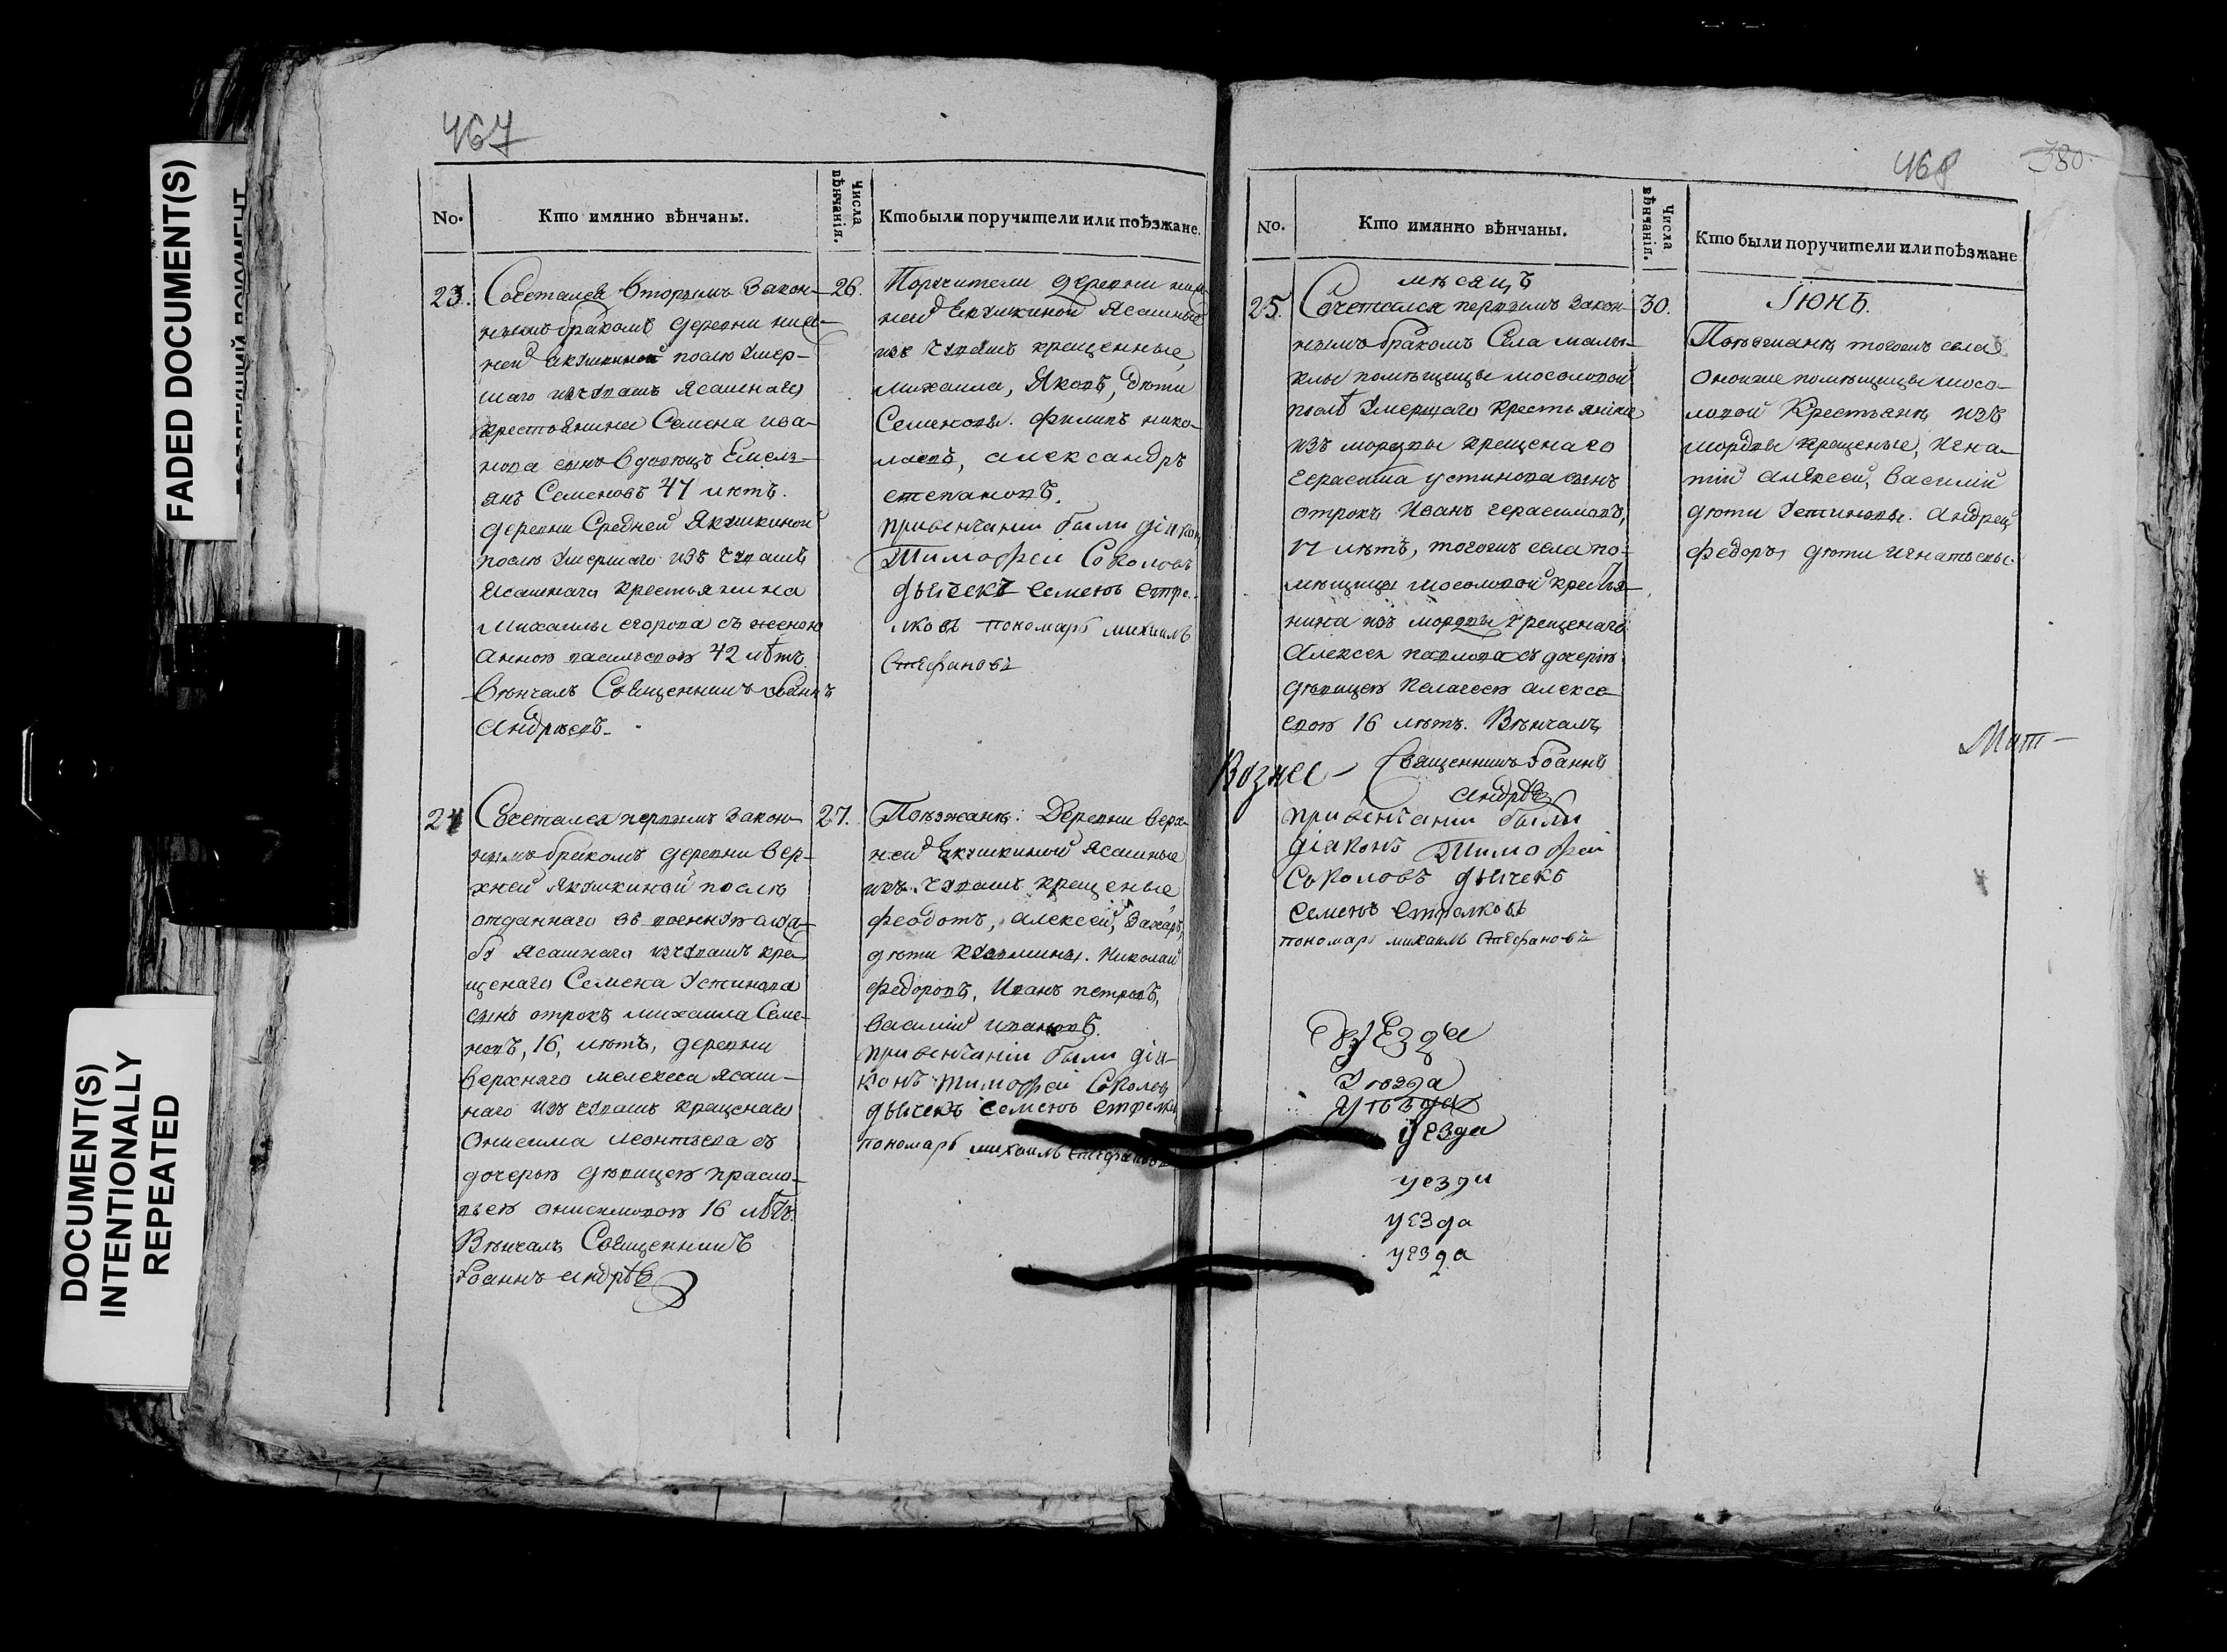 FADED DOCUMENT(S)
DOCUMENT(S)
INTENTIONALLY
REPEATED
467
No.
Кто имянно вѣнчаны.
Числа
вѣнчанія.
Кто были поручители или поѣзжане.
23.
Сочетался вторымъ закон-
нымъ бракомъ деревни ниж-
ней Якушкиной послѣ умер-
шаго изъ чувашъ ясашнаго
крестьянина Семена ива-
нова сынъ вдовецъ Емель-
янъ Семеновъ 47 лѣтъ.
деревни Средней Якушкиной
послѣ умершаго изъ чувашъ
Ясашнаго крестьянина
Михаилы егорова съ женою
Анною васильевою 42 лѣтъ.
Вѣнчалъ Священникъ Іоаннъ
Андрѣевъ.
26.
Поручители деревни ниж
ней Якушкиной Ясашные
изъ чувашъ крещенные
михаила, Яковъ, дѣти
Семеновы. Филипъ нико-
лаевъ, александръ
степановъ.
привенчании были діякон
Тимофеи Соколовъ
дьячекъ семенъ стре-
лковъ пономарь михаилъ
Стефановъ
24
Сочетался первымъ закон-
нымъ бракомъ деревни Вер-
хней Якушкиной послѣ
отданнаго въ военну служ-
бу Ясашнаго изъ чувашъ кре
щенаго Семена Устинова
сынъ отрокъ михаила Семе-
новъ, 16, лѣтъ, деревни
верхняго мелекеса ясаш-
наго изъ чувашъ крещенаго
Онисима леонтьева съ
дочерью дѣвицею праско-
вьею онисимовою 16 лѣтъ.
Вѣнчалъ Священникъ
Іоаннъ Андрѣевъ
27.
Поѣзжанѣ: Деревни верх-
ней Якушкиной Ясашные
изъ чувашъ крещеные
феодотъ, алексей, Захаръ,
дѣти кузмины. Николай
Федоровъ, Иванъ петровъ,
василій ивановъ.
привенчании были дія-
конъ тимофеи Соколов
дьячекъ семенъ стрелк
пономарь михаилъ стефановъ
468
380.
No.
Кто имянно вѣнчаны.
Числа
вѣнчанія.
Кто были поручители или поѣзжане
мѣсяцъ
Іюнь.
25.
Сочетался первымъ закон-
нымъ бракомъ Села малы-
клы помѣщицы мосоловой
послѣ умершаго крестьянина
изъ мордвы крещенаго
герасима устинова сынъ
отрокъ Иванъ герасимовъ,
17 лѣтъ, тогожъ села по-
мѣщицы мосоловой крестья-
нина изъ мордвы крещенаго
Алексея павлова съ дочерью
дѣвицею пелагеею алексе
евою 16 лѣтъ. Вѣнчалъ
Священникъ Іоаннъ
Андрѣевъ
привенчании были
діяконъ Тимофеи
Соколовъ дьячекъ
семенъ стрелковъ
пономарь михаилъ Стефановъ
30.
Поѣзжанѣ тогожъ села
оноиже помѣщицы мосо-
ловой Крестьянѣ изъ
мордвы крещеные, Игна-
тій Алексей, Василий
дѣти Устиновы. Андрей
федоръ, дѣти игнатьевы.
Вознес-
Мит-
уѣзда
уѣзда
уезда
уезди
уезда
уезда